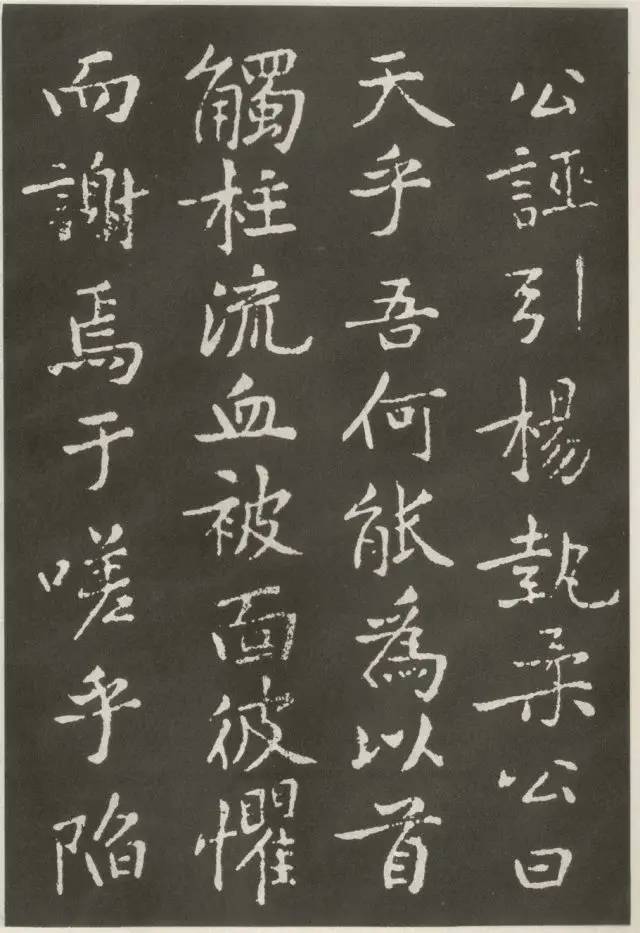 公誣引楊執柔公曰
天乎吾何能為以首
觸柱流血被面彼懼
而謝焉于嗟乎陷